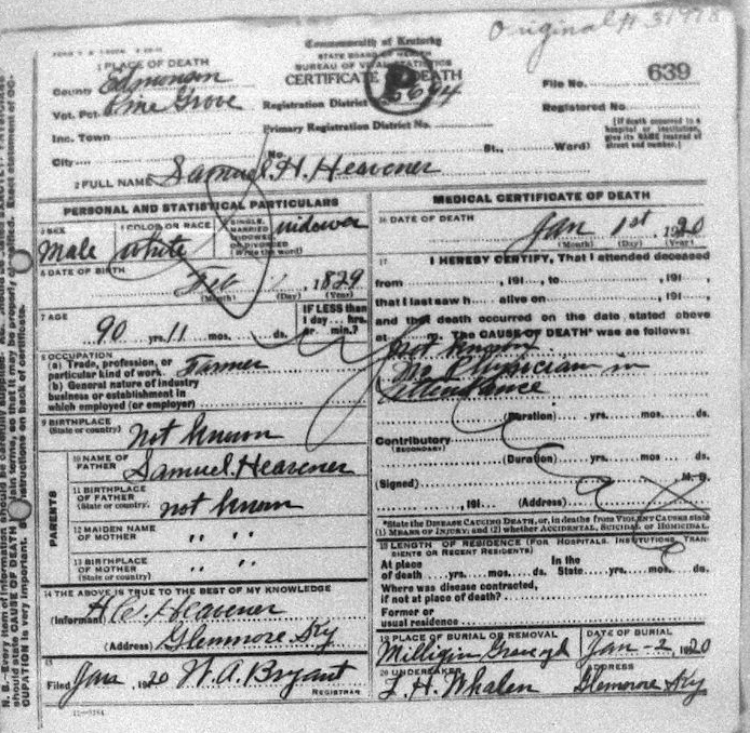 Original # 31978
1 PLACE OF DEATH
County Edmonson
Vot. Pct. Pine Grove
Inc. Town
City
Commonwealth of Kentucky
STATE BOARD OF HEALTH
BUREAU OF VITAL STATISTICS
CERTIFICATE OF DEATH
Registration District
Primary Registration District No.
No. St., Ward)
File No. 639
Registered No.
[If death occurred in a
hospital or institution,
give its NAME instead of
street and number.]
2 FULL NAME Samuel H. Heavener
PERSONAL AND STATISTICAL PARTICULARS
3 SEX
Male
4 COLOR OR RACE
white
5 SINGLE,
MARRIED
WIDOWED
OR DIVORCED
(Write the word)
widower
6 DATE OF BIRTH
Feb , 1829
(Month) (Day) (Year)
7 AGE
90 yrs. 11 mos. ds.
IF LESS than
1 day... hrs.
or min.?
8 OCCUPATION
(a) Trade, profession, or
particular kind of work. Farmer
(b) General nature of industry
business or establishment in
which employed (or employer)
9 BIRTHPLACE
(State or country) Not known
PARENTS
10 NAME OF
FATHER Samuel Heavener
11 BIRTHPLACE
OF FATHER
(State or country. not known
12 MAIDEN NAME
OF MOTHER " "
13 BIRTHPLACE
OF MOTHER
(State or country) " "
14 THE ABOVE IS TRUE TO THE BEST OF MY KNOWLEDGE
(Informant) H C Heavener
(Address) Glenmore Ky
15
Filed Jan , 1920 W. A. Bryant
REGISTRAR
MEDICAL CERTIFICATE OF DEATH
16 DATE OF DEATH
Jan 1st 1920
(Month) (Day) (Year)
17 I HEREBY CERTIFY, That I attended deceased
from , 191 , to , 191 ,
that I last saw h alive on , 191 ,
and that death occurred on the date stated above
at The CAUSE OF DEATH* was as follows:
Not known
No Physician in
attendance
(Duration) yrs. mos. ds.
Contributory
(SECONDARY)
(Duration) yrs. mos. ds.
(Signed) M. D.
, 191 (Address)
*State the DISEASE CAUSING DEATH, or, in deaths from VIOLENT CAUSES state
(1) MEANS OF INJURY; and (2) whether ACCIDENTAL, SUICIDAL or HOMICIDAL.
18 LENGTH OF RESIDENCE (FOR HOSPITALS, INSTITUTIONS, TRAN-
SIENTS OR RECENT RESIDENTS)
At place
of death yrs. mos. ds.
In the
State yrs. mos. ds.
Where was disease contracted,
if not at place of death?
Former or
usual residence
19 PLACE OF BURIAL OR REMOVAL
Milligin Graveyd
DATE OF BURIAL
Jan - 2, 1920
20 UNDERTAKER
T. H. Whalen
ADDRESS
Glenmore Ky